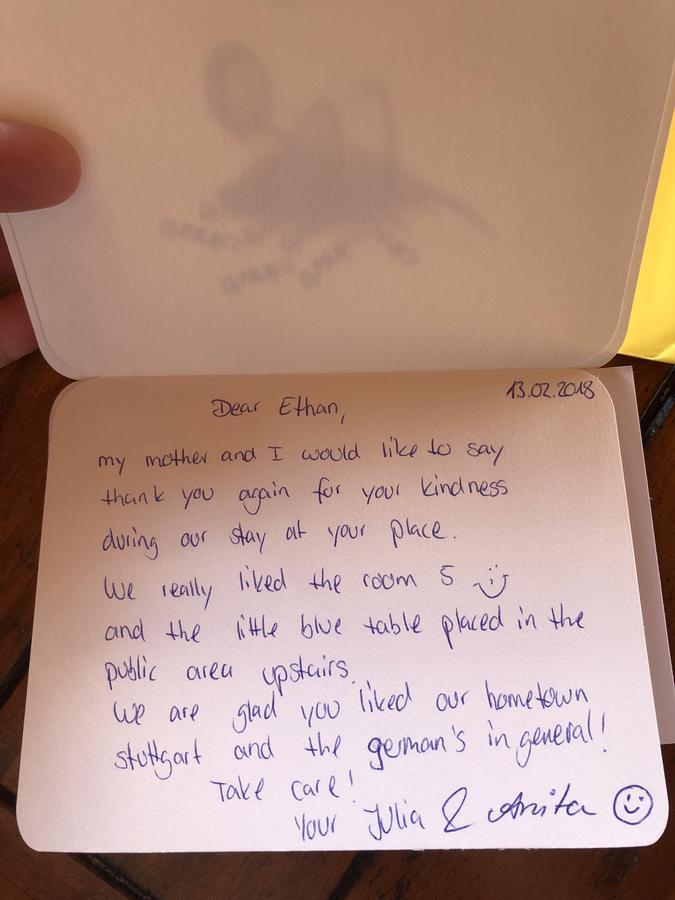 13.02.2018
Dear Ethan,
my mother and I would like to say
thank you again for your kindness
during our stay at your place.
We really liked the room 5
and the little blue table placed in the
public area upstairs.
We are glad you liked our hometown
stuttgart and the german's in general!
Take care!
Your Julia & Anita